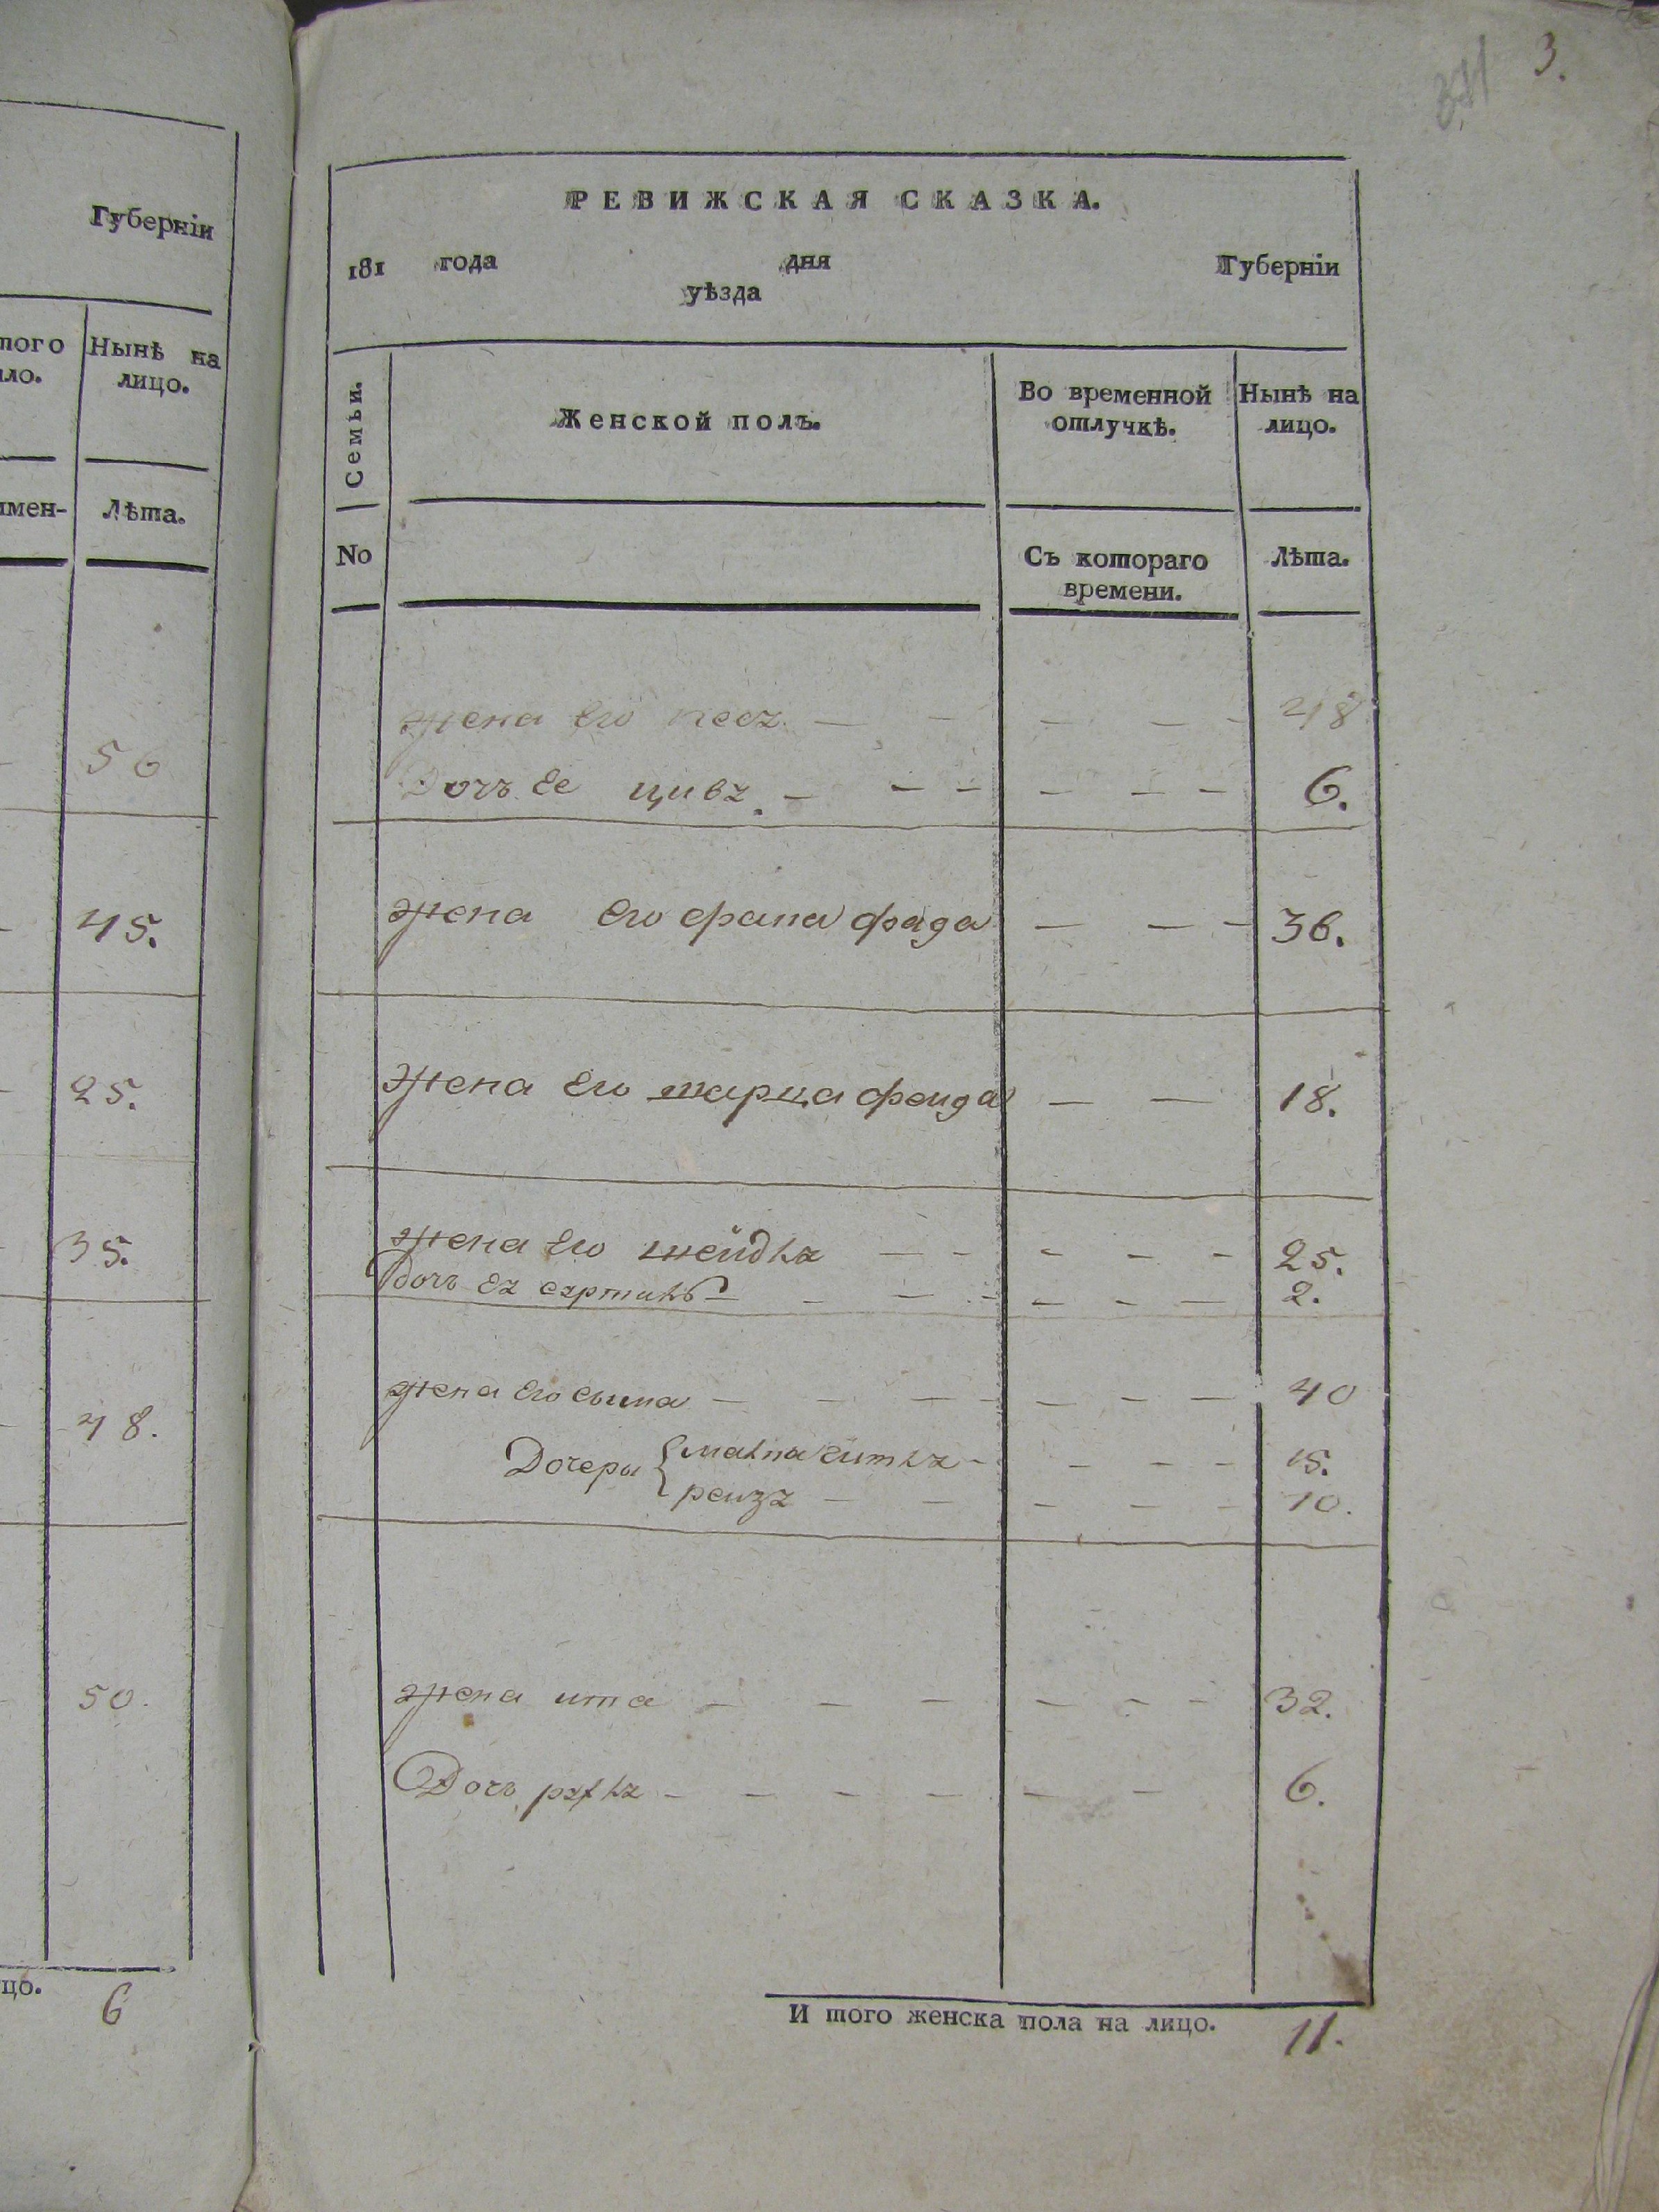 3.
371
Губерніи
Нынѣ на
лицо.
Лѣта.
56
45.
25.
35.
48.
50.
6
РЕВИЖСКАЯ СКАЗКА.
181 года дня Губерніи
уѣзда
Семьи.
Женской полъ.
Во временной
отлучкѣ.
Нынѣ на
лицо.
No
Съ котораго
времени.
Лѣта.
жена его песъ 48
Дочь ее цивъ 6.
жена его фрапа фрада 36.
жена его шарца фрейда 18.
жена его шейдлъ 25.
дочь еъ 2.
жена его сыма 40
Дочеры 15.
реизъ 10.
жена ита 32.
Дочь 6.
И того женска пола на лицо. 11.